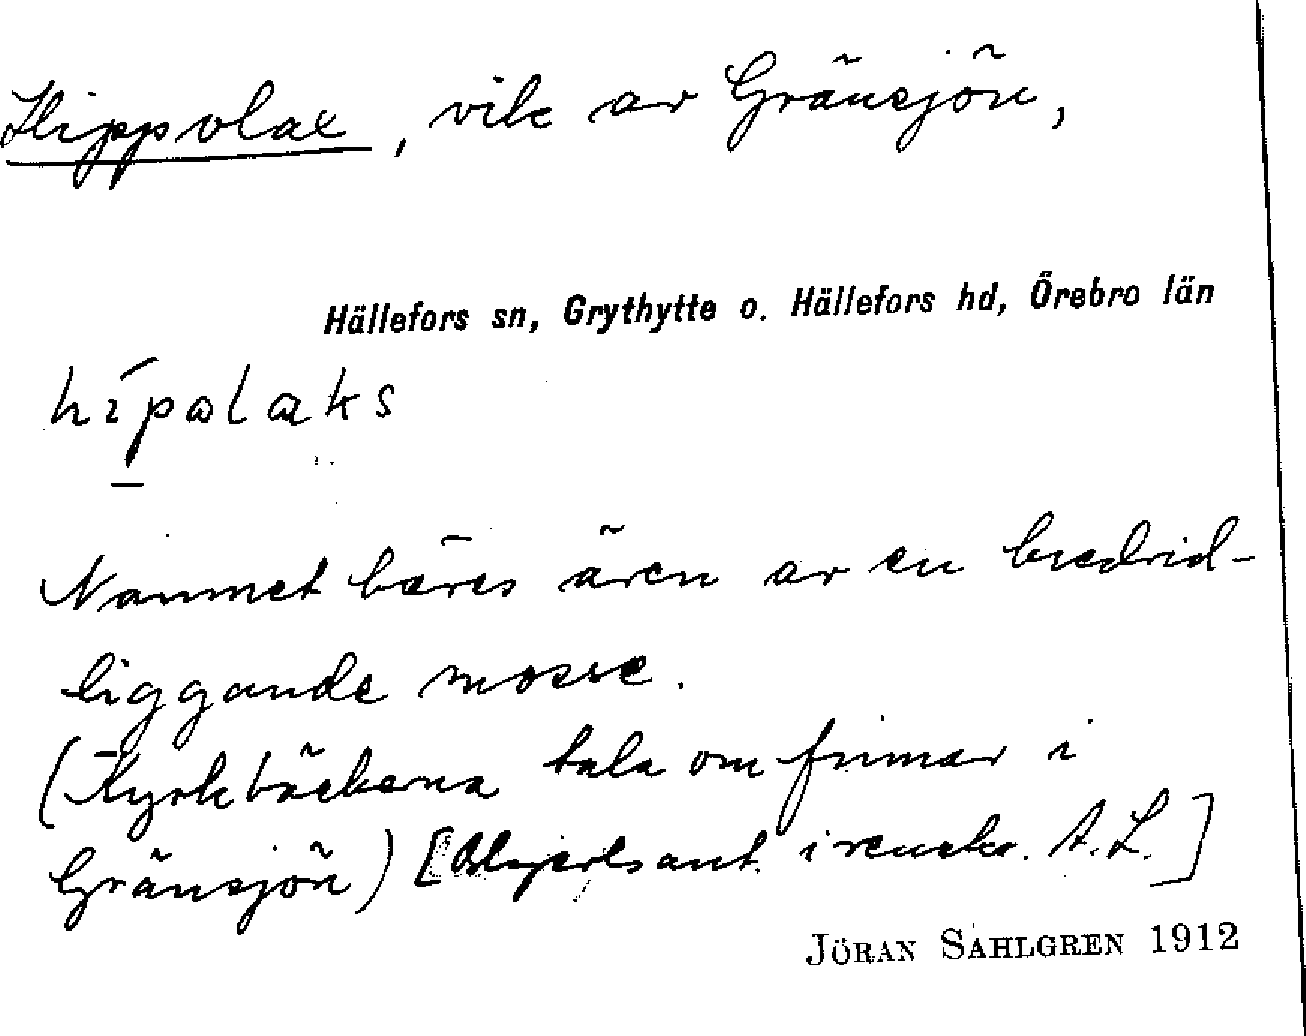 Hippolax, vik av Gränsjön,
Hällefors sn, Grythytte o. Hällefors hd, Örebro län
hípalaks
Namnet bäres även av en bredvid-
liggande mosse.
(Kyrkböckerna tala om finnar i
Gränsjön) [ ant. i A. L.]
JÖRAN SAHLGREN 1912